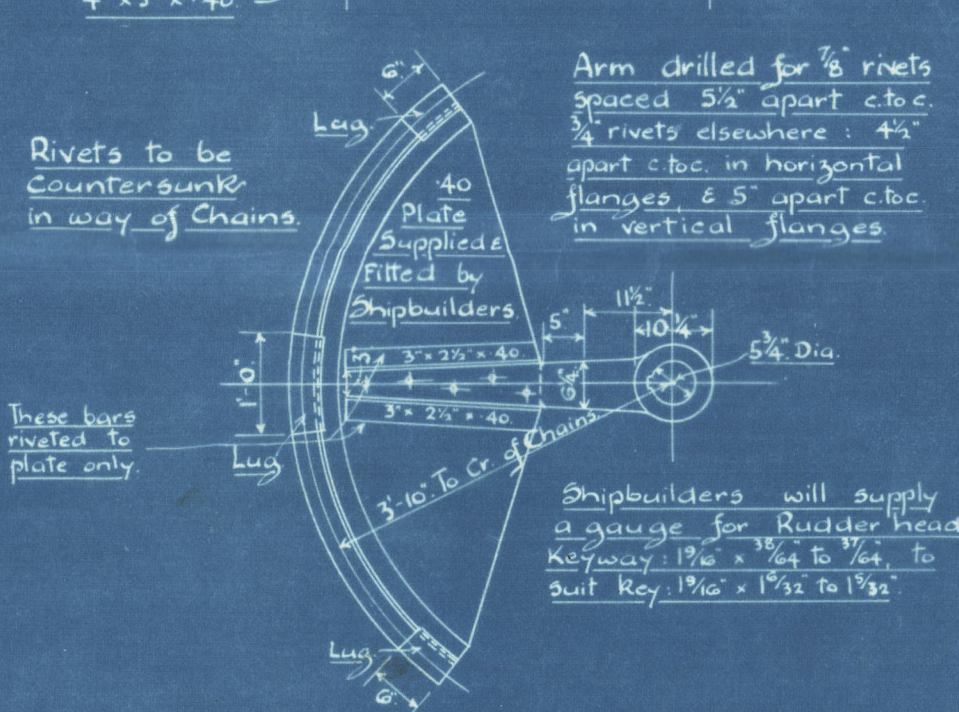 4" x 3" x .40.
Rivets to be
Countersunk
in way of Chains.
Arm drilled for 7/8" rivets
spaced 5½" apart c.to c.
¾" rivets elsewhere : 4½"
apart c.toc. in horizontal
flanges, & 5" apart c.toc.
in vertical flanges.
6"
Lug.
.40
Plate
Supplied &
Fitted by
Shipbuilders.
11½"
10¼"
5"
5¾" Dia.
3" x 2½" x .40.
3" x 2½" x .40.
1'-0"
These bars
riveted to
plate only.
Lug.
3'-10" To Cr. of Chains.
Shipbuilders will supply
a gauge for Rudder head
Keyway : 1 9/16" x 38/64" to 37/64", to
suit key : 1 9/16" x 1 6/32" to 1 5/32".
Lug.
6"